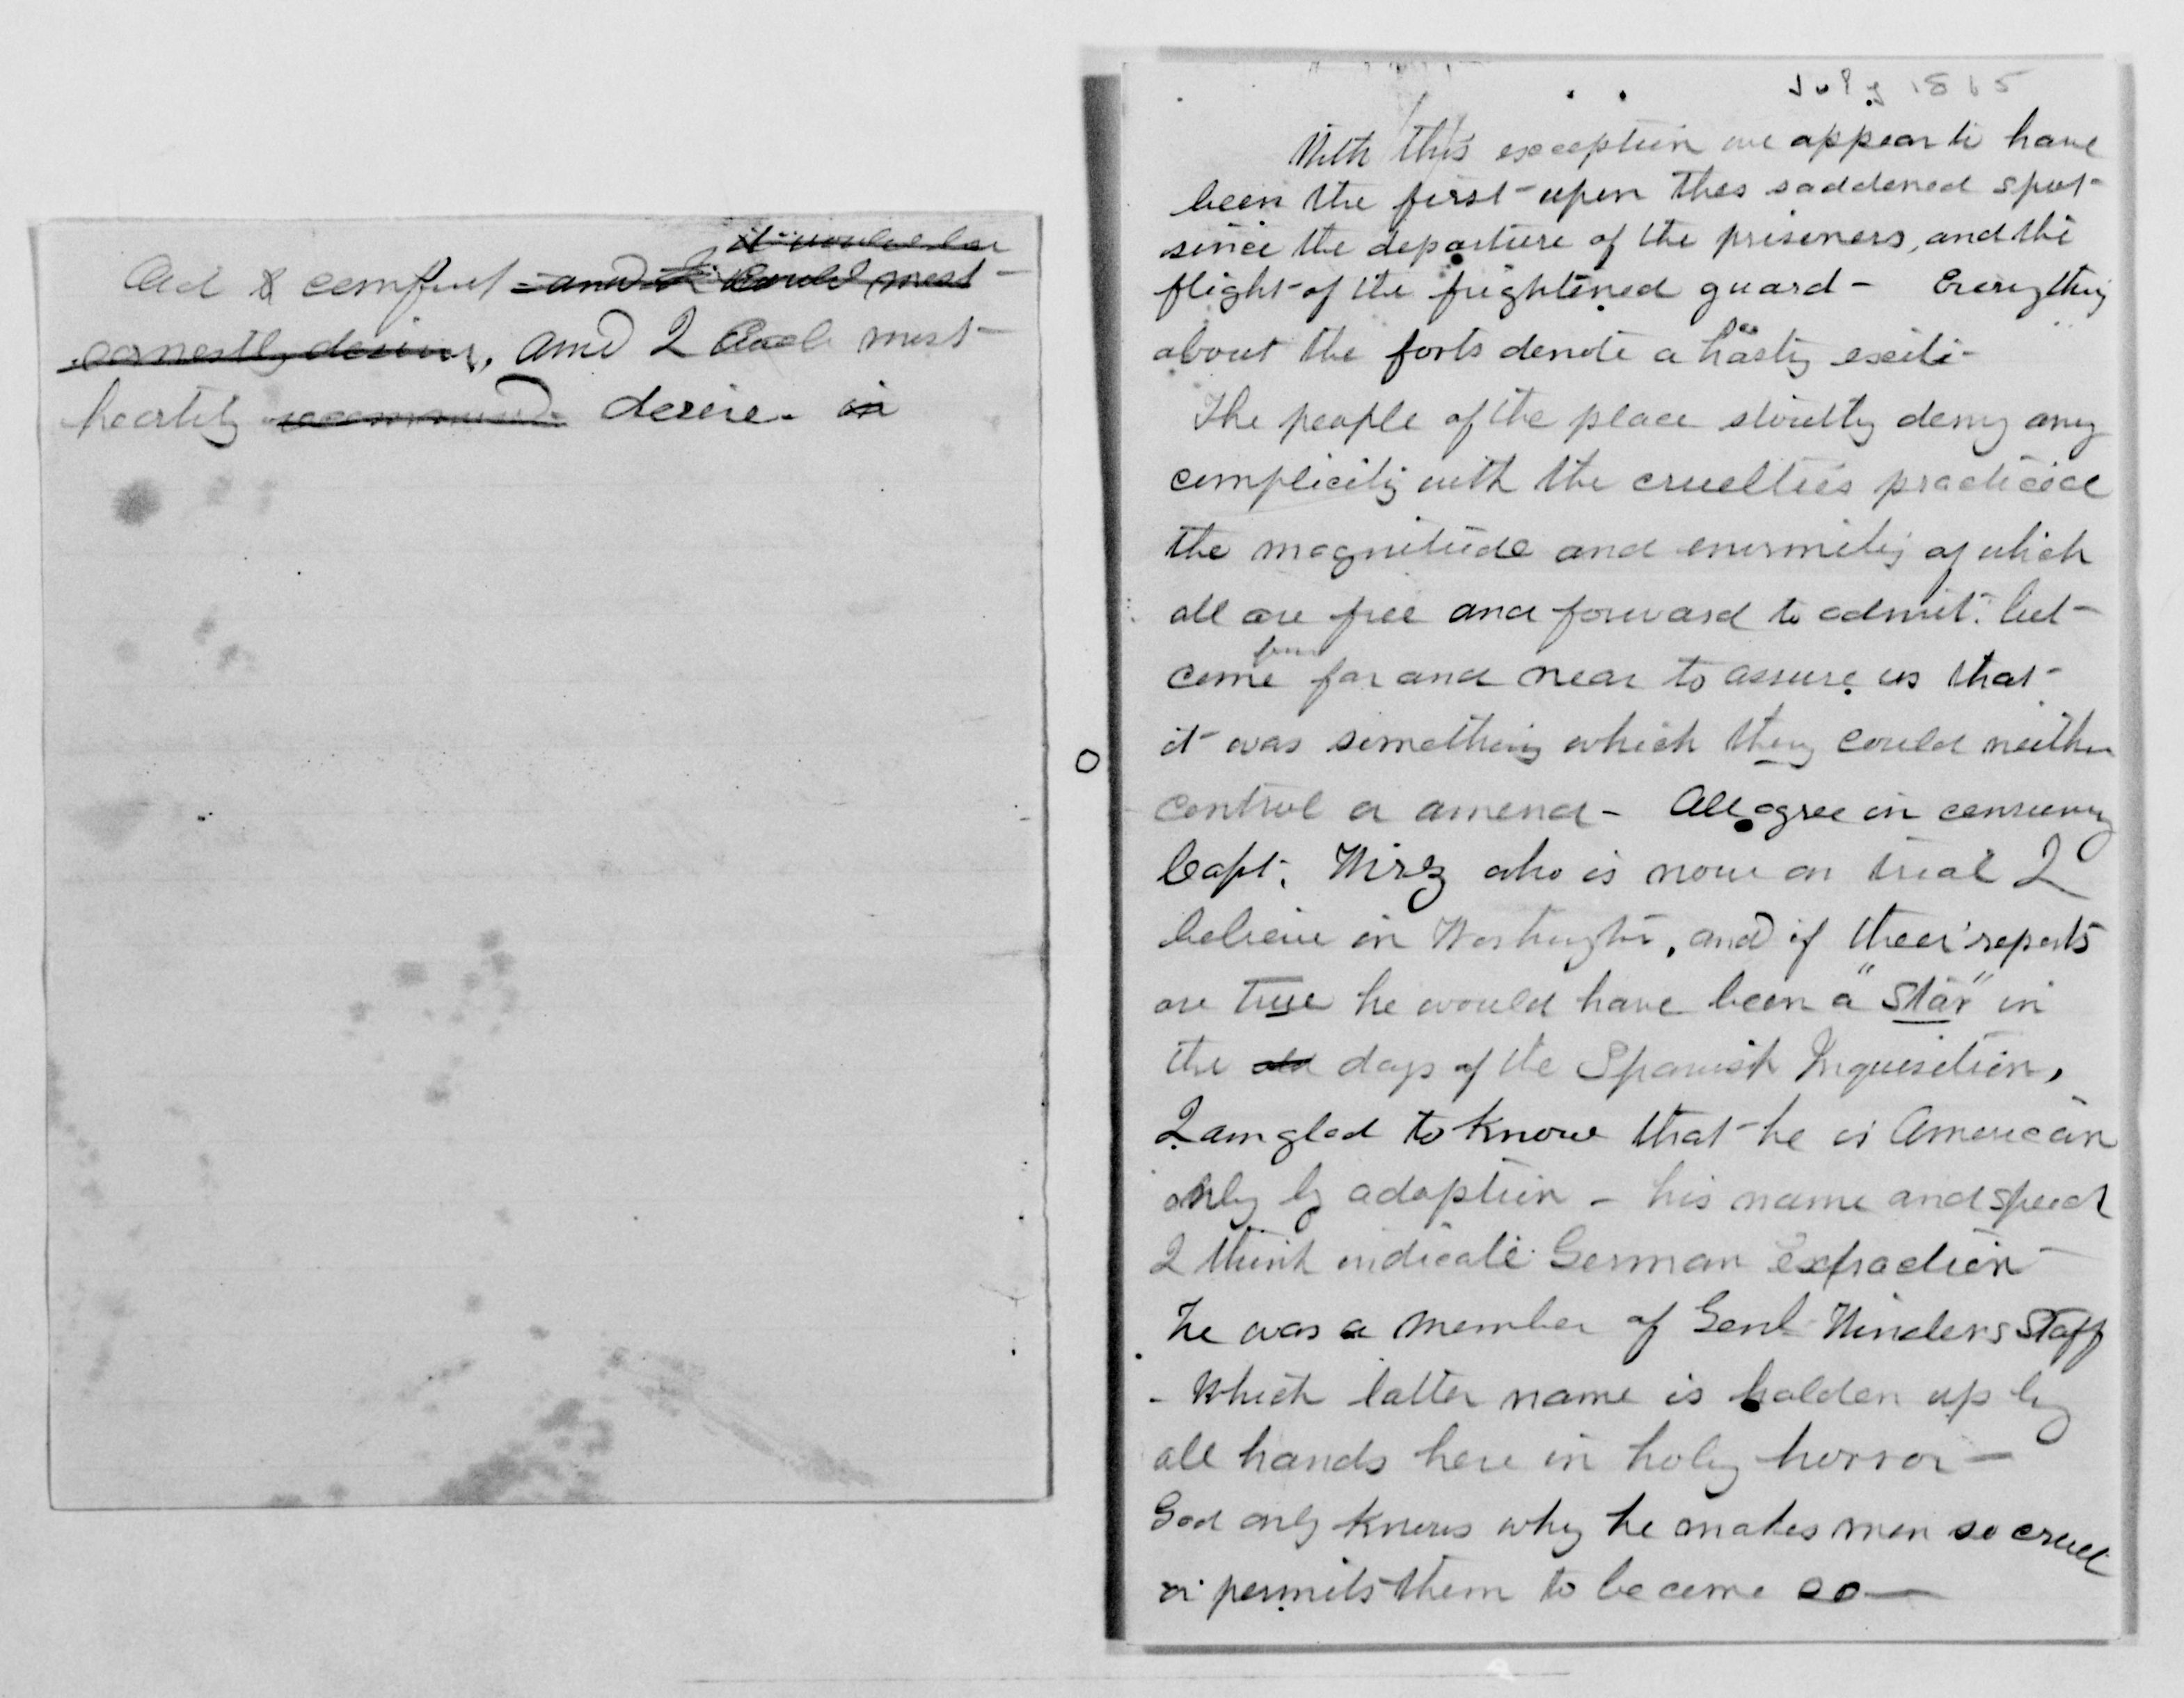 it would be
Aid & comfort - and I would most
earnestly desire, and I could most
heartily recommend desire. in
July 1865
With this exception we appear to have
been the first upon this saddened spot
since the departure of the prisoners, and the
flight of the frightened guard - Everything
about the forts denote a hasty exite -
The people of the place stoutly deny any
complicity with the cruelties practiced
the magnitude and enormity of which
all are free and forward to admit. but
from
come far and near to assure us that
it was something which they could neither
control or amend - All agree in censuring
Capt. Wirz who is now on trial I
believe in Washington, and if their reports
are true he would have been a "Star" in
the old days of the Spanish Inquisition,
I am glad to know that he is American
only by adoption - his name and speech
I think indicate German extraction
he was a member of Genl Winders Staff
- Which latter name is holden up by
all hands here in holy horror -
God only knows why he makes men so cruel
or permits them to become so —